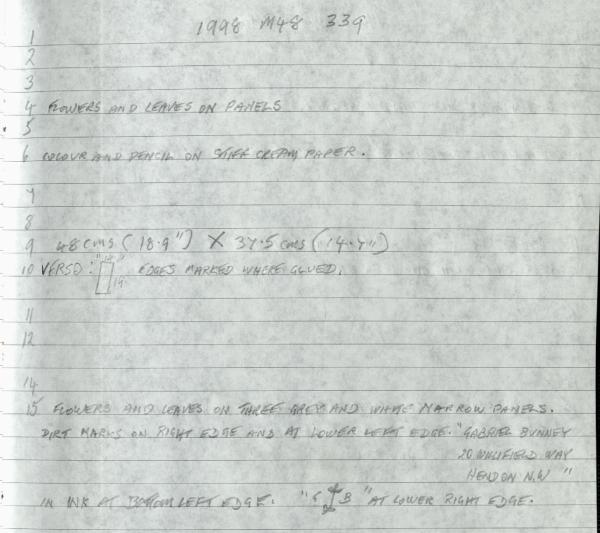 1998 M48 339
1
2
3
4 FLOWERS AND LEAVES ON PANELS
5
6 COLOUR AND PENCIL ON STIFF CREAM PAPER.
7
8
9 48 cms (18.9") X 37.5 cms (14.7")
10 VERSO: EDGES MARKED WHERE GLUED.
11
12
14
15 FLOWERS AND LEAVES ON THREE GREY AND WHITE MARROW PANELS.
DIRT MARKS ON RIGHT EDGE AND AT LOWER LEFT EDGE. "GABRIEL BUNNEY
20 WAY
HENDON N.W "
IN INK AT BOTTOM LEFT EDGE. " B " AT LOWER RIGHT EDGE.